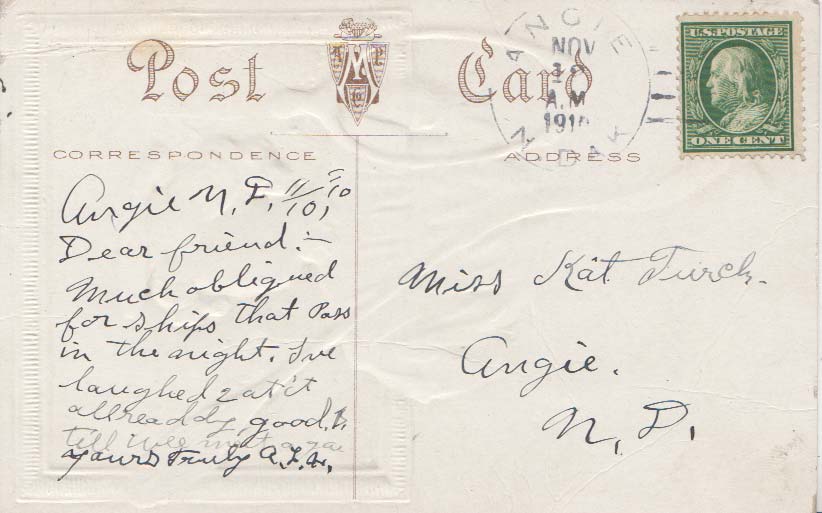 Post Card
CORRESPONDENCE
ADDRESS
ANGIE
NOV
A.M
N. DAK
U.S. POSTAGE
ONE CENT
Angie N. D. 11/10, 10
Dear friend:—
Much obligned
for ships that Pass
in the night. I've
laughed at it
allreaddy, good
till wee meet
yours Truly
Miss Kat. Turck.
Angie.
N. D.